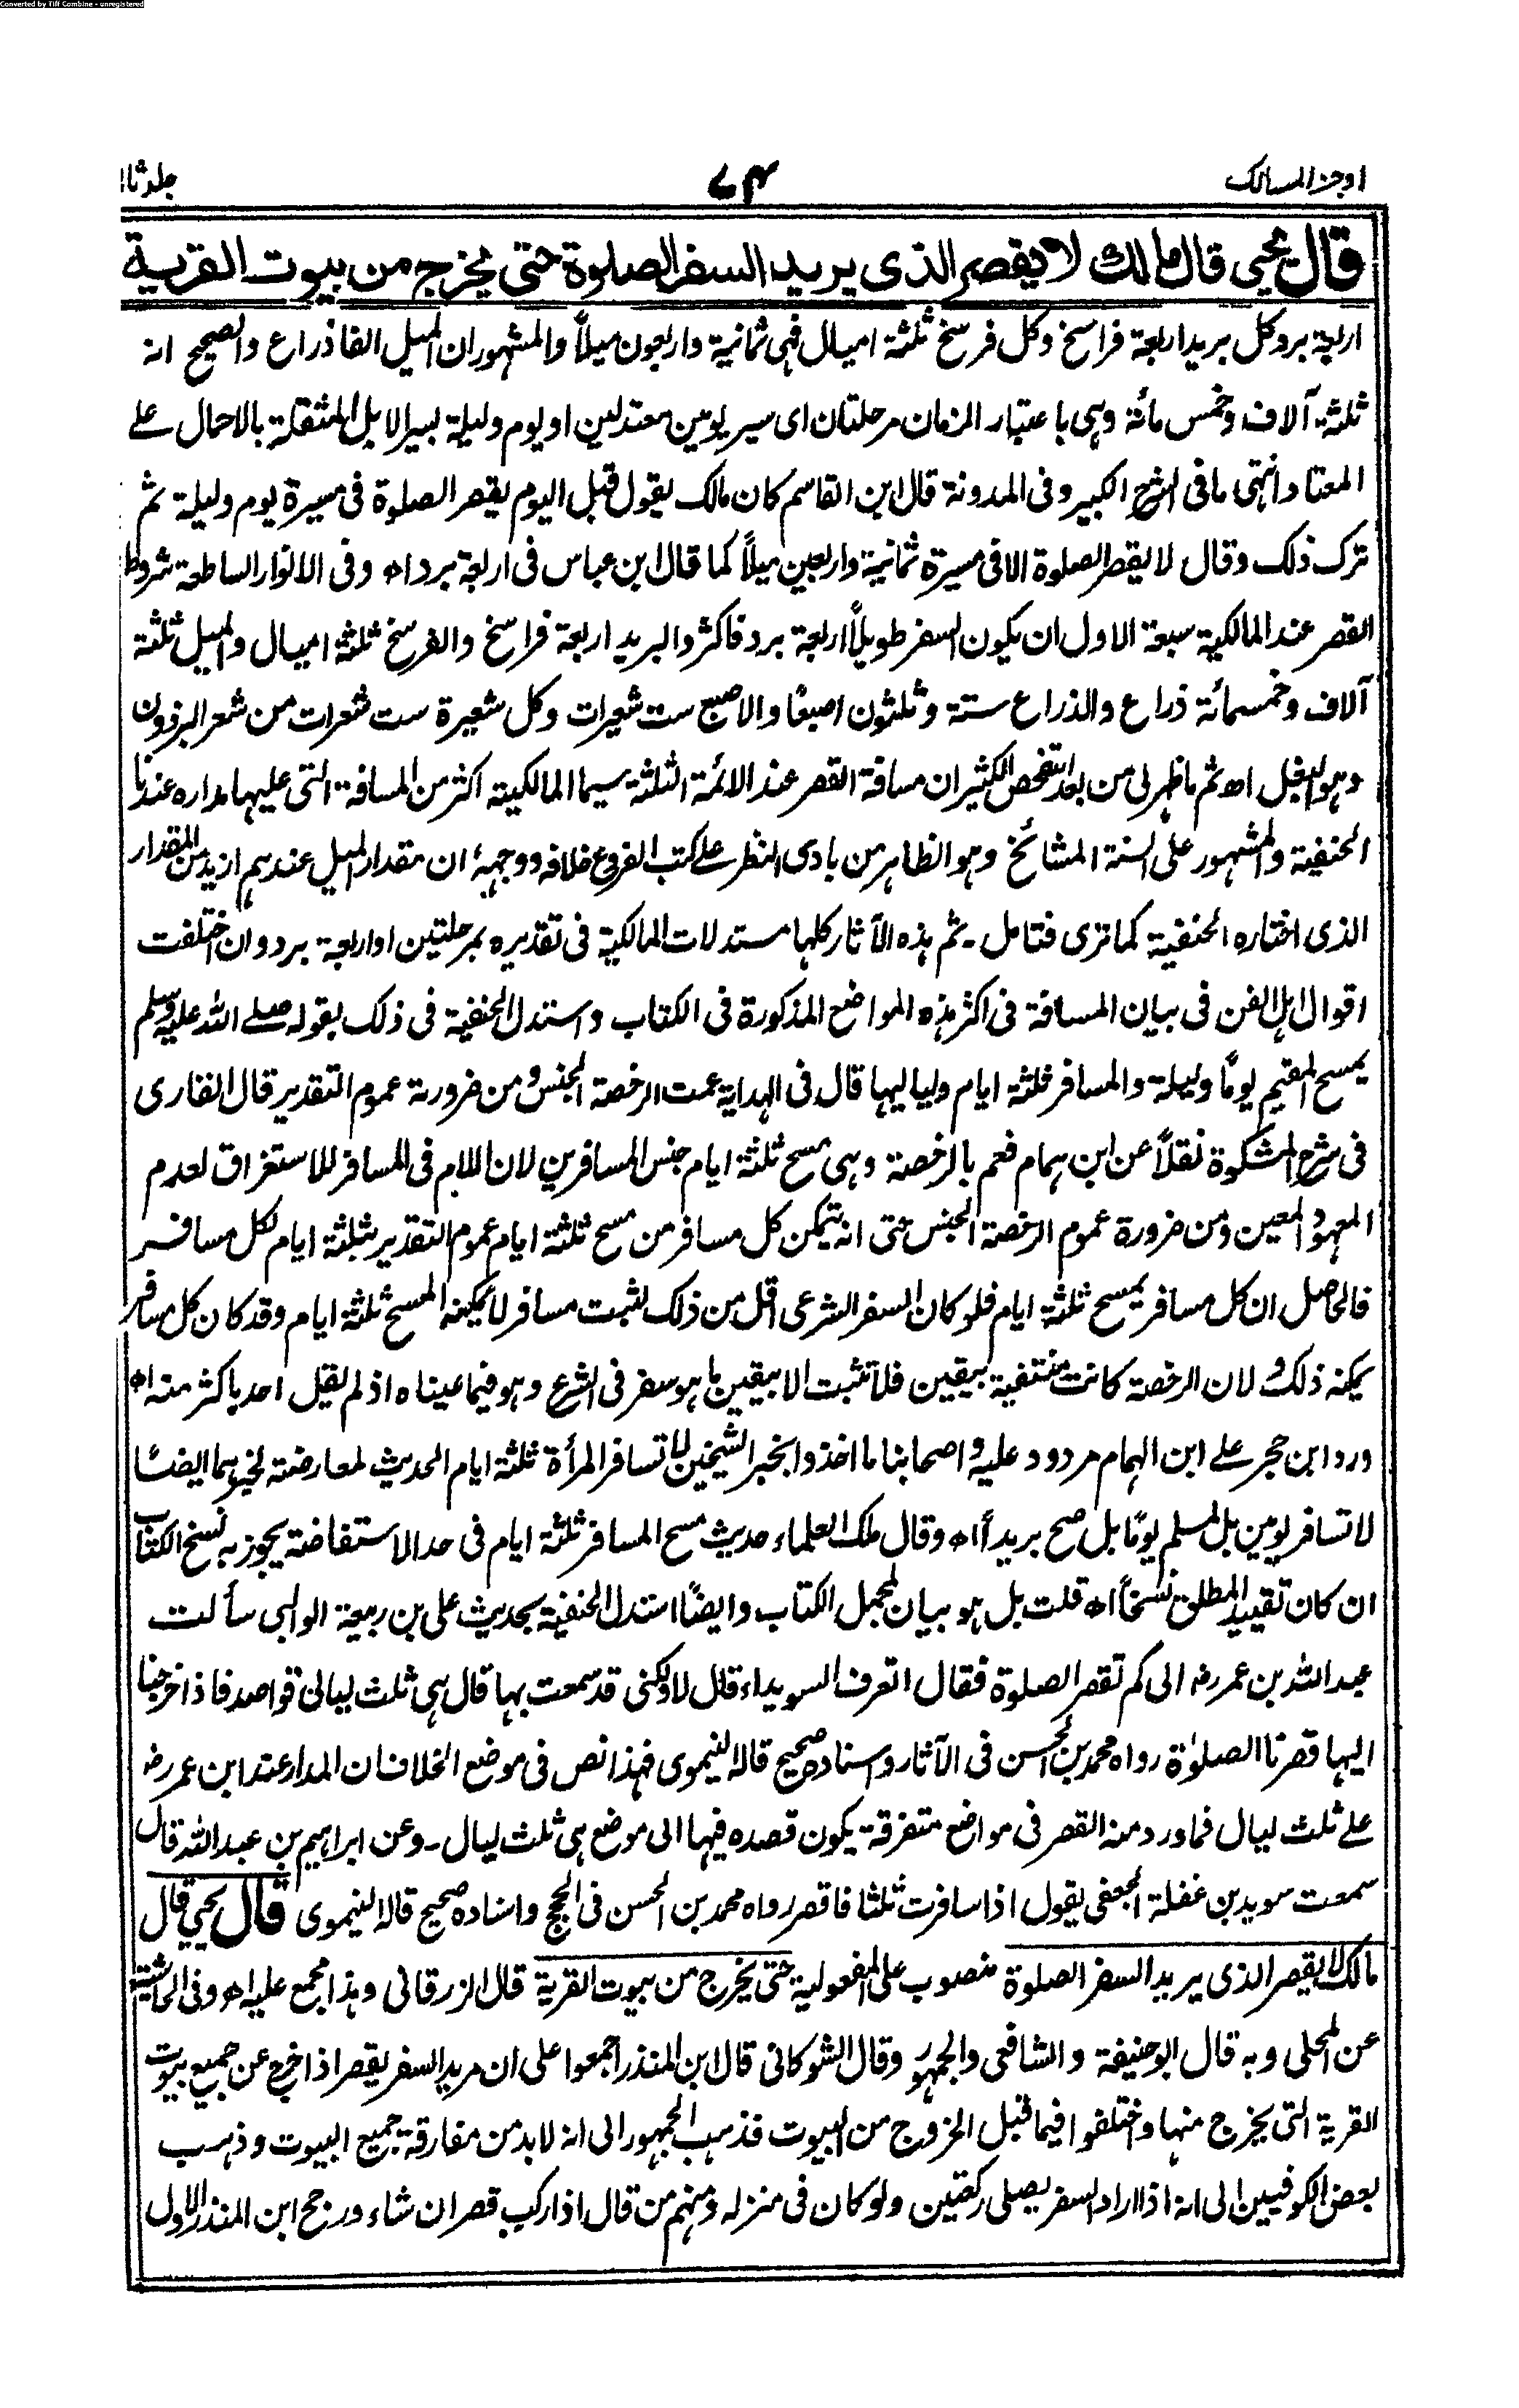 Converted by Tiff Combine - unregistered
اوجز المسالك
٧٤
جلد ثا
قال يحيى قال مالك لا يقصر الذى يريد السفر الصلوة حتى يخرج من بيوت القرية
اربعة برد وكل بريد اربعة فراسخ وكل فرسخ ثلثة اميال فهى ثمانية واربعون ميلاً والمشهور ان الميل الفا ذراع والصحيح انه
ثلثة آلاف وخمس مائة وهى باعتبار الزمان مرحلتان اى سير يومين معتدلين او يوم وليلة بسير الابل المثقلة بالاحمال على
المعتاد انتهى ما فى الشرح الكبير وفى المدونة قال ابن القاسم كان مالك يقول قبل اليوم يقصر الصلوة فى مسيرة يوم وليلة ثم
ترك ذلك وقال لا يقصر الصلوة الا فى مسيرة ثمانية واربعين ميلاً كما قال ابن عباس فى اربعة برد اھ وفى الانوار الساطعة شروط
القصر عند المالكية سبعة الاول ان يكون السفر طويلاً اربعة برد فاكثر والبريد اربعة فراسخ والفرسخ ثلثة اميال والميل ثلثة
آلاف وخمسمائة ذراع والذراع ستة وثلثون اصبعًا والاصبع ست شعيرات وكل شعيرة ست شعرات من شعر البرذون
وهو البغل اھ ثم ما ظهر لى من بعد التفحص الكثير ان مسافة القصر عند الائمة الثلثة سيما المالكية اكثر من المسافة التى عليها مداره عندنا
الحنفية والمشهور على السنة المشائخ وهو الظاهر من بادى النظر على كتب الفروع خلافه ووجهه ان مقدار الميل عندهم ازيد من المقدار
الذى اختاره الحنفية كما ترى فتامل ۔ ثم هذه الآثار كلها مستدلات المالكية فى تقديره بمرحلتين او اربعة برد وان اختلفت
اقوال اهل الفن فى بيان المسافة فى اكثر هذه المواضع المذكورة فى الكتاب واستدل الحنفية فى ذلك بقوله صلى الله عليه وسلم
يمسح المقيم يومًا وليلة والمسافر ثلثة ايام ولياليها قال فى الهداية عمت الرخصة الجنس ومن ضرورته عموم التقدير قال القارى
فى شرح المشكوة نقلاً عن ابن همام فعم بالرخصة وهى مسح ثلثة ايام جنس المسافرين لان اللام فى المسافر للاستغراق لعدم
المعهود المعين ومن ضرورة عموم الرخصة الجنس حتى انه يتمكن كل مسافر من مسح ثلثة ايام عموم التقدير بثلثة ايام لكل مسافر
فالحاصل ان كل مسافر يمسح ثلثة ايام فلو كان السفر الشرعى اقل من ذلك لثبت مسافر لا يمكنه المسح ثلثة ايام وقد كان كل مسافر
يمكنه ذلك ولان الرخصة كانت منتفية بيقين فلا تثبت الا بيقين ما هو سفر فى الشرع وهو فيما عيناه اذ لم يقل احد باكثر منه اھ
ورد ابن حجر على ابن الهمام مردود عليه واصحابنا ما اخذوا بخبر الشيخين لا تسافر المرأة ثلثة ايام الحديث لمعارضته لخبرهما ايضًا
لا تسافر يومين بل لمسلم يومًا بل صح بريداً اھ وقال ملك العلماء حديث مسح المسافر ثلثة ايام فى حد الاستفاضة يجوز به نسخ الكتاب
ان كان تقييد المطلق نسخاً اھ قلت بل هو بيان لمجمل الكتاب وايضًا استدل الحنفية بحديث على بن ربيعة الوالبى سألت
عبد الله بن عمر رضـ الى كم تقصر الصلوة فقال اتعرف السويداء قال لا ولكنى قد سمعت بها قال هى ثلث ليال قواصد فاذا خرجنا
اليها قصرنا الصلوٰة رواه محمد بن الحسن فى الآثار واسناده صحيح قاله النيموى فهذا نص فى موضع الخلاف ان المدار عند ابن عمر رضـ
على ثلث ليال فما ورد منه القصر فى مواضع متفرقة يكون قصده فيها الى موضع هى ثلث ليال ۔ وعن ابراهيم بن عبد الله قال
سمعت سويد بن غفلة الجعفى يقول اذا سافرت ثلثا فاقصر رواه محمد بن الحسن فى الحجج واسناده صحيح قاله النيموى قال يحيى قال
مالك لا يقصر الذى يريد السفر الصلوة منصوب على المفعولية حتى يخرج من بيوت القرية قال الزرقانى وهذا مجمع عليه اھ وفى الحاشية
عن المحلى وبه قال ابو حنيفة والشافعى والجمهور وقال الشوكانى قال ابن المنذر اجمعوا على ان مريد السفر يقصر اذا خرج عن جميع بيوت
القرية التى يخرج منها واختلفوا فيما قبل الخروج من البيوت فذهب الجمهور الى انه لا بد من مفارقة جميع البيوت وذهب
بعض الكوفيين الى انه اذا اراد السفر يصلى ركعتين ولو كان فى منزله ومنهم من قال اذا ركب قصر ان شاء ورجح ابن المنذر الاول